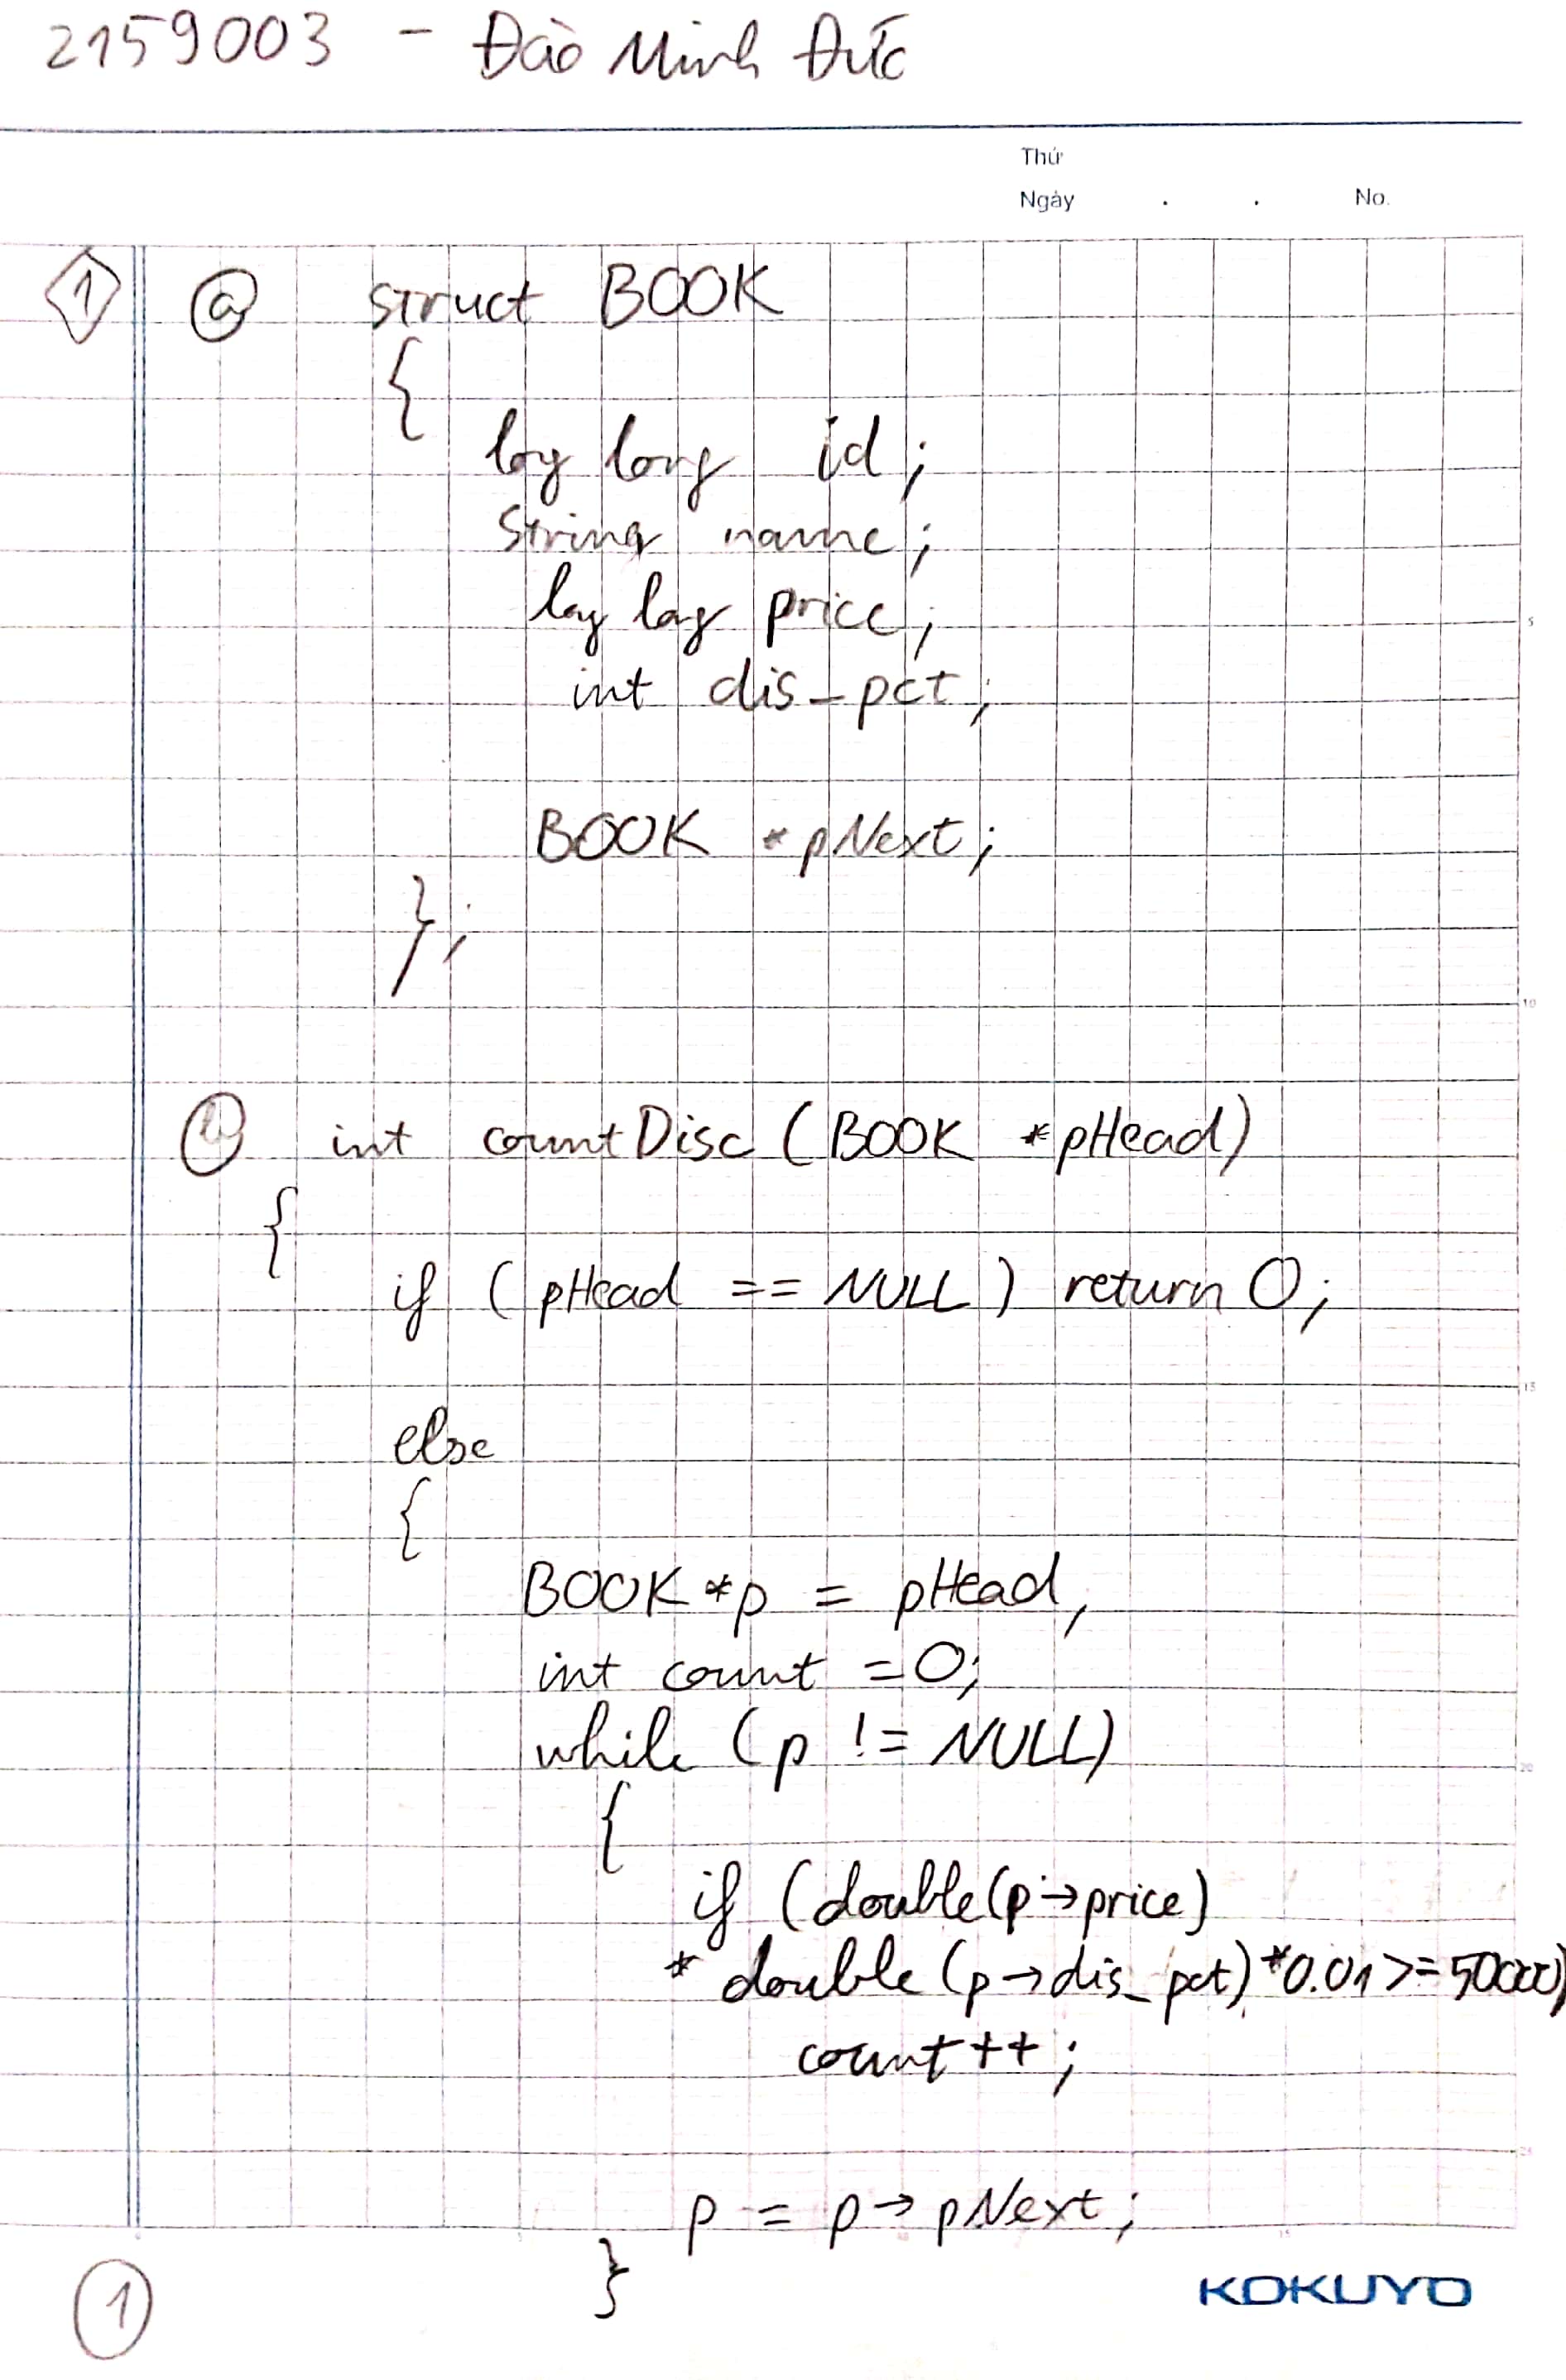 2159003 - Đào Minh Đức
Thứ
Ngày . . No.
1 a struct BOOK
{
long long id;
string name;
long long price;
int dis_pct;
5
BOOK *pNext;
};
10
b int countDisc (BOOK *pHead)
{
if (pHead == NULL) return 0;
15
else
{
BOOK *p = pHead;
int count = 0;
while (p != NULL)
20
{
if (double(p→price)
* double (p→dis_pct) *0.01 >= 50000)
count++;
25
p = p→pNext;
15
}
1
KOKUYO